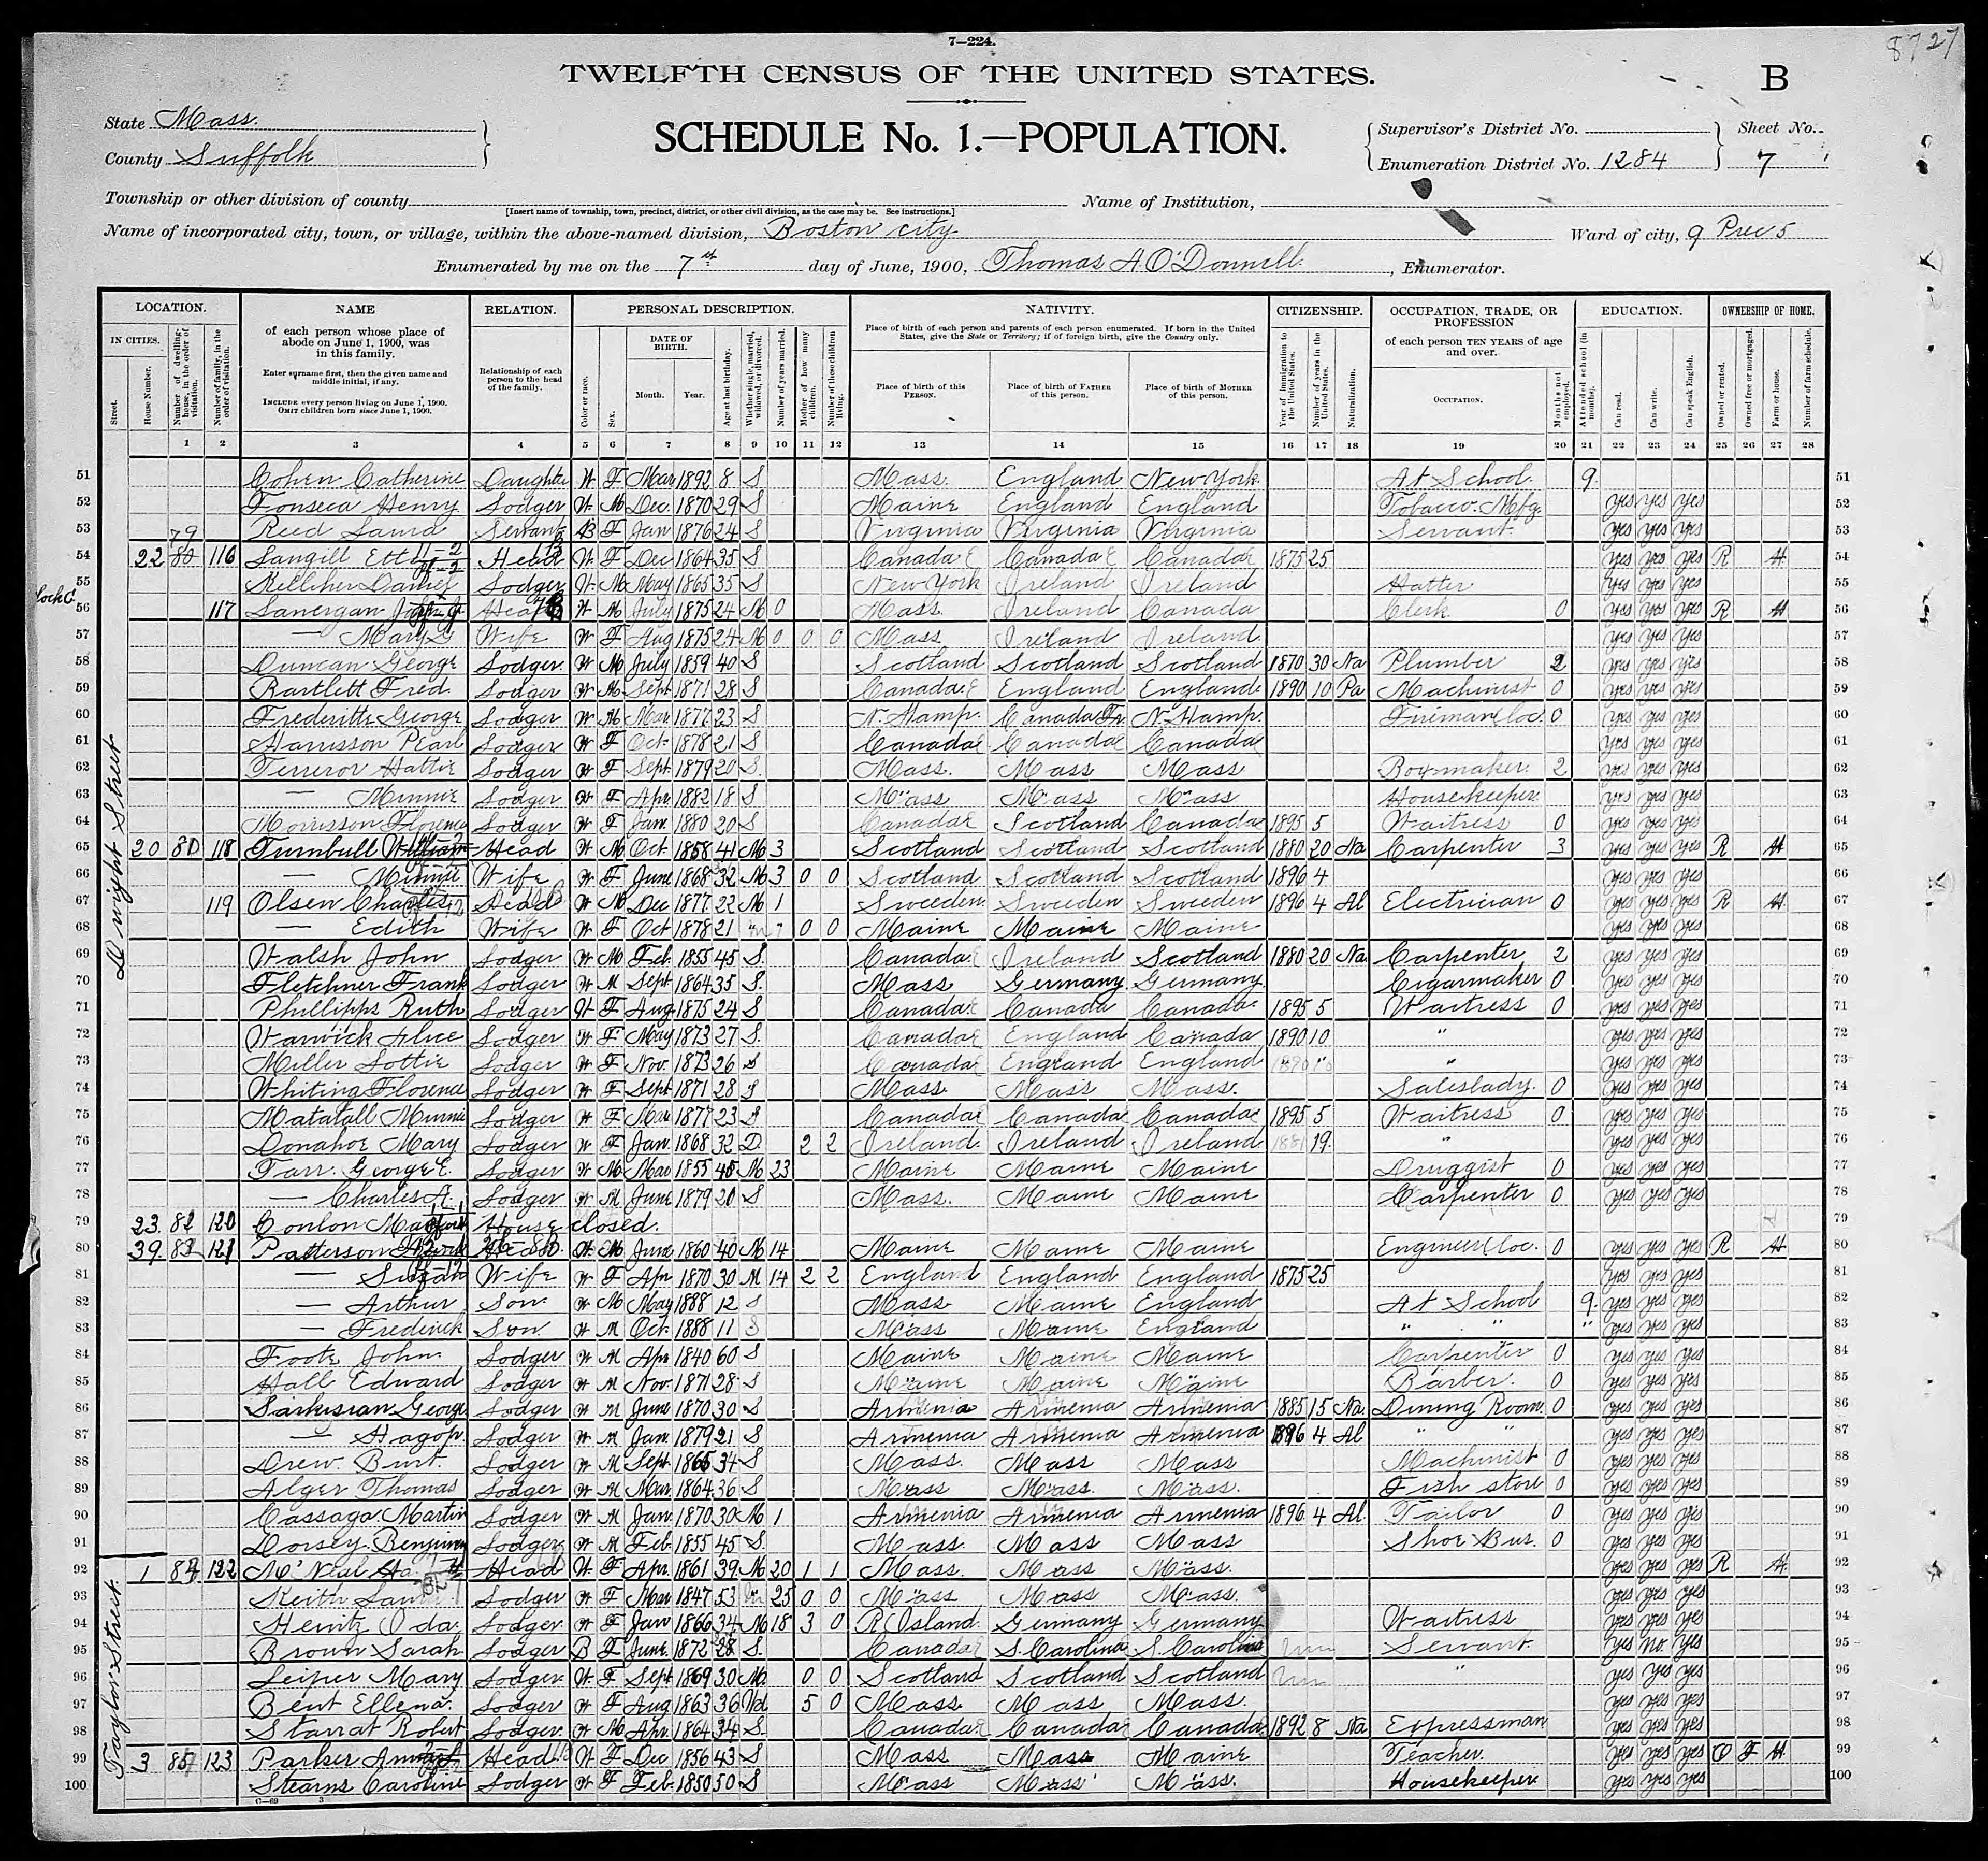 7—224.
8727
TWELFTH CENSUS OF THE UNITED STATES.
B
State Mass.
County Suffolk
SCHEDULE No. 1.—POPULATION.
Supervisor's District No.
Enumeration District No. 1284
Sheet No.
7
Township or other division of county
[Insert name of township, town, precinct, district, or other civil division, as the case may be. See instructions.]
Name of Institution,
Name of incorporated city, town, or village, within the above-named division, Boston city
Ward of city, 9 Prec 5
Enumerated by me on the 7th day of June, 1900, Thomas A O'Donnell, Enumerator.
LOCATION. NAME RELATION. PERSONAL DESCRIPTION. NATIVITY. CITIZENSHIP. OCCUPATION, TRADE, OR PROFESSION EDUCATION. OWNERSHIP OF HOME.
IN CITIES.
Street.
House Number.
Number of dwelling-house, in the order of visitation.
Number of family, in the order of visitation.
of each person whose place of abode on June 1, 1900, was in this family.
Enter surname first, then the given name and middle initial, if any.
INCLUDE every person living on June 1, 1900.
OMIT children born since June 1, 1900.
Relationship of each person to the head of the family.
Color or race.
Sex.
DATE OF BIRTH.
Month. Year.
Age at last birthday.
Whether single, married, widowed, or divorced.
Number of years married.
Mother of how many children.
Number of these children living.
Place of birth of each person and parents of each person enumerated. If born in the United States, give the State or Territory; if of foreign birth, give the Country only.
Place of birth of this PERSON.
Place of birth of FATHER of this person.
Place of birth of MOTHER of this person.
Year of immigration to the United States.
Number of years in the United States.
Naturalization.
of each person TEN YEARS of age and over.
OCCUPATION.
Months not employed.
Attended school (in months).
Can read.
Can write.
Can speak English.
Owned or rented.
Owned free or mortgaged.
Farm or house.
Number of farm schedule.
1 2 3 4 5 6 7 8 9 10 11 12 13 14 15 16 17 18 19 20 21 22 23 24 25 26 27 28
Dwight Street
51 Cohen Catherine Daughter W F Mar 1892 8 S Mass. England New York At School 9 51
52 Fonseca Henry Lodger W M Dec. 1870 29 S Maine England England Tobacco Mfg. yes yes yes 52
53 Reed Laura Servant B F Jan 1876 24 S Virginia Virginia Virginia Servant yes yes yes 53
54 22 79 80 116 Langill Head W F Dec 1864 35 S Canada E Canada E Canada E 1875 25 yes yes yes R H 54
55 Kelliher Daniel Lodger W M May 1865 35 S New York Ireland Ireland Hatter yes yes yes 55
56 117 Lanergan John J Head W M July 1875 24 M 0 Mass Ireland Canada Clerk 0 yes yes yes R H 56
57 — Mary Wife W F Aug 1875 24 M 0 0 0 Mass Ireland Ireland yes yes yes 57
58 Duncan George Lodger W M July 1859 40 S Scotland Scotland Scotland 1870 30 Na Plumber 2 yes yes yes 58
59 Bartlett Fred Lodger W M Sept 1871 28 S Canada E England England 1890 10 Pa Machinist 0 yes yes yes 59
60 Frederitte George Lodger W M Mar 1877 23 S N. Hamp. Canada Fr. N. Hamp. Fireman (loc. 0 yes yes yes 60
61 Harrisson Pearl Lodger W F Oct. 1878 21 S Canada E Canada E Canada E yes yes yes 61
62 Hattie Lodger W F Sept. 1879 20 S. Mass. Mass Mass Boxmaker. 2 yes yes yes 62
63 — Minnie Lodger W F Apr 1882 18 S Mass Mass Mass Housekeeper yes yes yes 63
64 Morrisson Florence Lodger W F Jan. 1880 20 S Canada E Scotland Canada E 1895 5 Waitress 0 yes yes yes 64
65 20 81 118 Turnbull William Head W M Oct 1858 41 M 3 Scotland Scotland Scotland 1880 20 Na Carpenter 3 yes yes yes R H 65
66 — Minnie Wife W F June 1868 32 M 3 0 0 Scotland Scotland Scotland 1896 4 yes yes yes 66
67 119 Olsen Charles Head W M Dec 1877 22 M 1 Sweeden Sweeden Sweeden 1896 4 Al Electrician 0 yes yes yes R H 67
68 — Edith Wife W F Oct 1878 21 0 0 Maine Maine Maine yes yes yes 68
69 Walsh John Lodger W M Feb. 1855 45 S. Canada E Ireland Scotland 1880 20 Na. Carpenter 2 yes yes yes 69
70 Fletchner Frank Lodger W M Sept. 1864 35 S. Mass Germany Germany Cigarmaker 0 yes yes yes 70
71 Phillipps Ruth Lodger W F Aug. 1875 24 S Canada E Canada Canada 1895 5 Waitress 0 yes yes yes 71
72 Warwick Alice Lodger W F May 1873 27 S. Canada E England Canada 1890 10 " yes yes yes 72
73 Miller Lottie Lodger W F Nov. 1873 26 S Canada E England England 1890 10 " yes yes yes 73
74 Whiting Florence Lodger W F Sept 1871 28 S Mass Mass Mass. Saleslady. 0 yes yes yes 74
75 Matatall Minnie Lodger W F Mar 1877 23 S Canada E Canada E Canada E 1895 5 Waitress 0 yes yes yes 75
76 Donahoe Mary Lodger W F Jan. 1868 32 D. 2 2 Ireland Ireland Ireland 1881 19. " yes yes yes 76
77 Farr. George E. Lodger W M Mar 1855 45 M 23 Maine Maine Maine Druggist 0 yes yes yes 77
78 — Charles A. Lodger W M June 1879 20 S Mass. Maine Maine Carpenter 0 yes yes yes 78
79 23. 82 120 Conlon House closed. 79
80 39. 83 121 Patterson Head W M June 1860 40 M 14 Maine Maine Maine Engineer (loc. 0 yes yes yes R H 80
81 — Susan Wife W F Apr 1870 30 M 14 2 2 England England England 1875 25 yes yes yes 81
82 — Arthur Son W M May 1888 12 S Mass Maine England At School 9 yes yes yes 82
83 — Frederick Son W M Oct. 1888 11 S Mass Maine England " " " yes yes yes 83
84 Foote John Lodger W M Apr 1840 60 S Maine Maine Maine Carpenter 0 yes yes yes 84
85 Hall Edward Lodger W M Nov. 1871 28 S Maine Maine Maine Barber. 0 yes yes yes 85
86 Sarkisian George Lodger W M June 1870 30 S Armenia Armenia Armenia 1885 15 Na. Dining Room. 0 yes yes yes 86
87 — Hagop. Lodger W M Jan 1879 21 S Armenia Armenia Armenia 1896 4 Al " " yes yes yes 87
88 Drew. Burt. Lodger W M Sept. 1865 34 S Mass. Mass Mass Machinist 0 yes yes yes 88
89 Alger Thomas Lodger W M Mar. 1864 36 S Mass Mass. Mass. Fish store 0 yes yes yes 89
90 Cassaga Martin Lodger W M Jan 1870 30 M 1 Armenia Armenia Armenia 1896 4 Al. Tailor 0 yes yes yes 90
91 Dorsey. Benjamin Lodger W M Feb. 1855 45 S. Mass Mass Mass Shoe Bus. 0 yes yes yes 91
Taylor Street.
92 1 84 122 Mc Neal Head W F Apr. 1861 39 M 20 1 1 Mass. Mass Mass. yes yes yes R H 92
93 Keith Lodger W F Mar 1847 53 25 0 0 Mass Mass Mass. yes yes yes 93
94 Heintz Ida. Lodger W F Jan 1866 34 M 18 3 0 R Island Germany Germany Waitress yes yes yes 94
95 Brown Sarah Lodger B F June 1872 28 S. Canada E S. Carolina S. Carolina Un Servant. yes no. yes 95
96 Leiper Mary Lodger W F Sept 1869 30 M. 0 0 Scotland Scotland Scotland Un " yes yes yes 96
97 Bent Ellena. Lodger W F Aug 1863 36 Wd 5 0 Mass Mass Mass. yes yes yes 97
98 Starrat Robert Lodger. W M Apr. 1864 34 S. Canada E Canada E Canada 1892 8 Na Expressman yes yes yes 98
99 3 85 123 Parker Head W F Dec 1856 43 S Mass Mass Maine Teacher. yes yes yes O F H 99
100 Stearns Caroline Lodger W F Feb. 1850 50 S Mass Mass Mass. Housekeeper yes yes yes 100
C—69 3